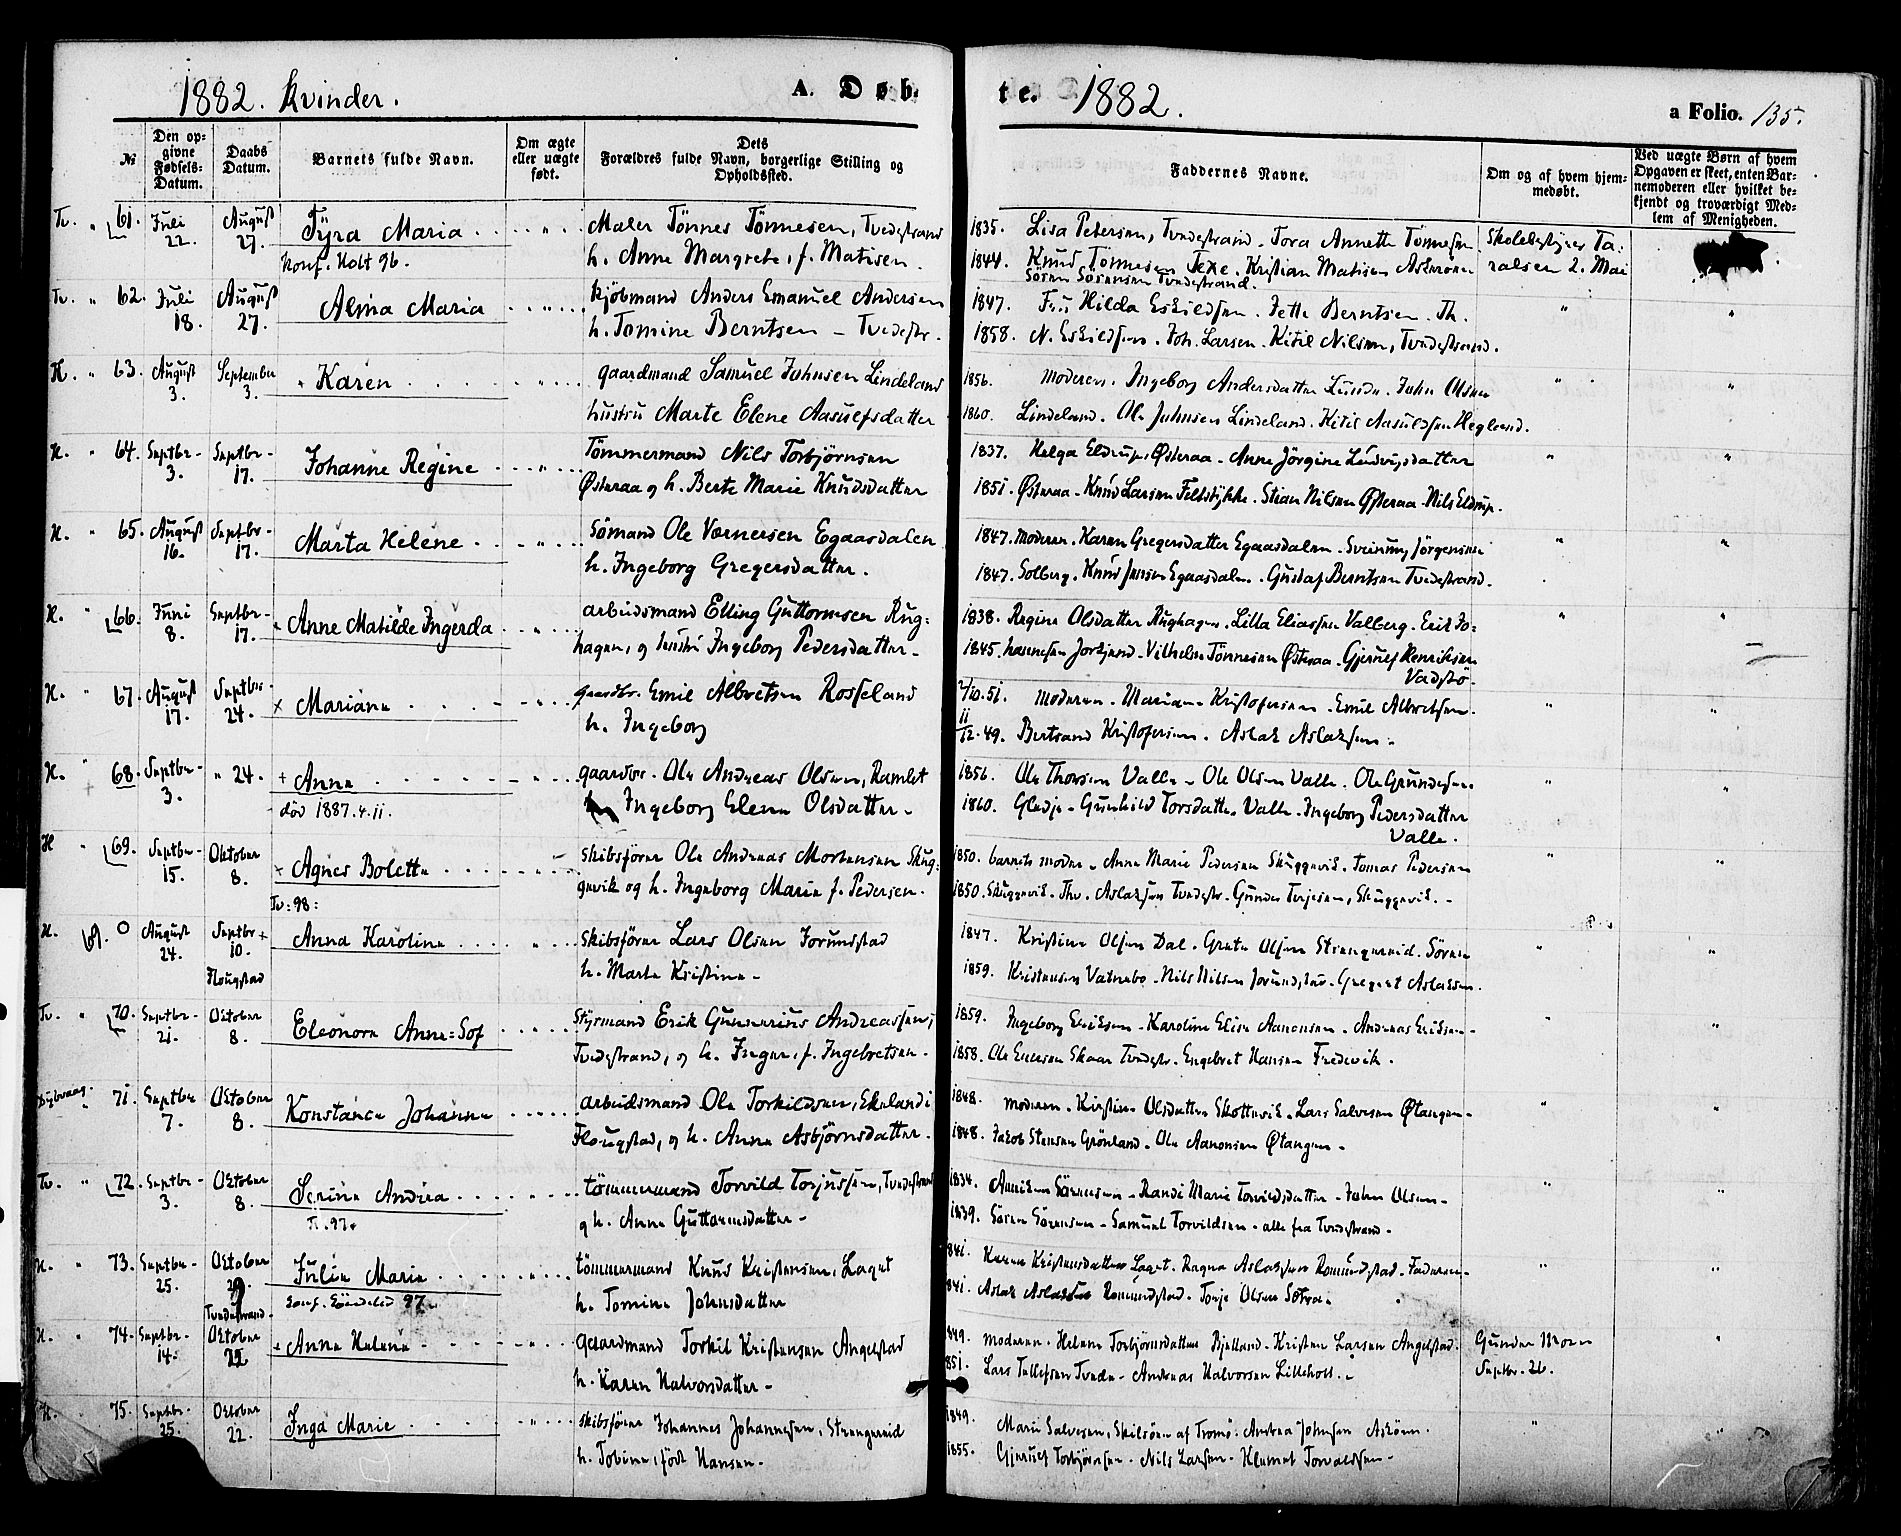 1882. Kvinder. A. Døb-
te. 1882. a Folio. 135.
№ Den opgivne Fødsels-Datum. Daabs Datum. Barnets fulde Navn. Om ægte eller uægte født. Dets Forældres fulde Navn, borgerlige Stilling og Opholdssted. Faddernes Navne. Om og af hvem hjemmedøbt. Ved uægte Børn af hvem Opgaven er skeet, enten Barnemoderen eller hvilket bekjendt og troværdigt Medlem af Menigheden.
Tv. " 61. Juli 22. August 27. Tyra Maria " Maler Tönnes Tönnesen, Tvedestrand 1835. Lisa Petersen, Tvedestrand. Tora Annette Tönnesen Skolebestyrer Ta:
Konf. Holt 96. h. Anne Margrete, f. Matisen. 1844. Knud Tönnesen Texe. Kristian Matisen Askerøen ralsen 2. Mai
Sören Sörensen Tvedestrand.
Tv. " 62. Juli 18. August 27. Alma Maria " Kjøbmand Anders Emanuel Andersen 1847. Fru Hilda Eskildsen. Jette Berntsen. Th. " "
h. Tomine Berntsen – Tvedestr. 1858. N. Eskildsen. Joh. Larsen. Kitil Nilsen, Tvedestrand.
H. " 63. August 3. September 3. Karen " gaardmand Samuel Johnsen Lindeland 1856. Moderen. Ingeborg Andersdatter Lunde. John Olsen " "
hustru Marte Elene Aasulfsdatter 1860. Lindeland. Ole Johnsen Lindeland. Kitil Aasuldsen Hegland.
H. " 64. Septbr- 3. Septbr- 17. Johanne Regine " Tömmermand Nils Torbjörnsen 1837. Helga Eldrup, Østeraa. Anne Jörgine Ludvigsdatter " "
Østeraa og h. Berte Marie Knudsdatter 1851. Østeraa. Knud Larsen Feltstykke. Stian Nilsen Østeraa. Nils Eldrup.
H. " 65. August 16. Septbr- 17. Marta Helene " Sömand Ole Vernersen Egaasdalen 1847. Moderen. Karen Gregersdatter Egaasdalen. Sveinung Jörgensen " "
h. Ingeborg Gregersdatter. 1847. Solberg. Knud Jensen Egaasdalen. Gustaf Berntsen Tvedestrand.
H. " 66. Juni 8. Septbr- 17. Anne Matilde Ingerda " arbeidsmand Elling Guttormsen Rug: 1838. Regine Olsdatter Rughagen. Lilla Eliassen Valberg. Erik Jo= " "
hagen, og hustru Ingeborg Pedersdatter. 1845. hannesen Jorkjend. Vilhelm Tönnesen Østeraa. Gjerulf Henriksen
Vadstö.
H. " 67. August 17. Septbr- 24. x Mariane " gaardbr. Emil Albretsen Rosseland 2/10.51. Moderen. Mariane Kristofersen. Emil Albretsen. " "
h. Ingeborg 11/12.49. Bertrand Kristofersen. Aslak Aslaksen.
H. " 68. Septbr- 3. " 24. + Anna " gaardbr. Ole Andreas Olsen, Ramlet 1856. Ole Thorsen Valle. Ole Olsen Valle. Ole Gundersen. " "
død 1887.4.11. h. Ingeborg Elene Olsdatter. 1860. Gledje. Gunhild Torsdatter Valle. Ingeborg Pedersdatter
Valle.
H " 69. Septbr- 15. Oktober 8. x Agnes Bolette " Skibsförer Ole Andreas Mortensen Skug: 1850. barnets moder. Anne Marie Pedersen Skuggevik. Tomas Pedersen " "
Tv: 98: gevik og h. Ingeborg Maria f. Pedersen. 1850. Skuggevik. Thv. Aslaksen Tvedestr. Gunder Terjesen, Skuggevik.
H. 69. August 24. Septbr 10. Flougstad Anna Karoline " Skibsförer Lars Olsen Jorunstad 1847. Kristine Olsen Dal. Grete Olsen Strengereid. Sören " "
h. Marte Kristine. 1859. Kristensen Vatnebo. Nils Nilsen Jorundstad. Gregert Aslaksen.
Tv. " 70. Septbr- 21. Oktober 8. Eleonora Anne=Sof " Styrmand Erik Gunerius Andreassen, 1859. Ingeborg Eriksen. Karoline Elise Aanonsen. Andreas Eriksen. " "
Tvedestrand, og h. Inger, f. Ingebretsen. 1858. Ole Ellersen Skaar Tvedestr. Engebret Hansen Frederik.
Dybvaag. " 71. Septbr 7. Oktober 8. Konstance Johanne " arbeidsmand Ole Torkildsen, Ekeland i 1848. Moderen. Kirstine Olsdatter Skottevik. Lars Salvesen Øtangen. " "
Flougstad, og h. Anne Asbjörnsdatter. 1848. Jakob Stensen Grönland. Ole Aanonsen Øtangen.
Tv. " 72. Septbr- 3. Oktober 8. Serine Andrea " tömmermand Torvild Torjussen, Tvedestrand 1834. Anniken Sörensen. Randi Marie Torvildsdatter. John Olsen. " "
Tv. 97. og h. Anne Guttormsdatter. 1839. Sören Sörensen. Samuel Torvildsen. alle fra Tvedestrand.
H. " 73. Septbr- 25. Oktober 29. Tvedestrand. Julie Marie " tömmermand Knud Kristensen, Laget 1841. Karen Kristensdatter Laget. Ragna Aslaksen Romundstad. Faderen. " "
Konf. Söndeled 97. h. Tomine Johnsdatter 1841. Aslak Aslaksen Romundstad. Tonje Olsen Solvra.
H. " 74. Septbr- 14. Oktober 22 + Anne Helene " Gaardmand Torkil Kristensen Angelstad 1849. Moderen. Helene Torbjörnsdatter Bjelland. Kristen Larsen Angelstad. Gunder Moen "
h. Karen Halvorsdatter. 1851. Lars Tellefsen Tvede. Andreas Halvorsen Lilleholt. Septbr. 26.
H. 75. Septbr- 25. Oktober 22. Inga Marie " skibsförer Johannes Johannesen, Strengereid 1849. Marie Salvesen, Skilsöen af Tromö. Andrea Johnsen Asköen. " "
h. Tobine, född Hansen. 1855. Gjerulf Torbjörnsen. Nils Larsen. Klemet Torvaldsen.